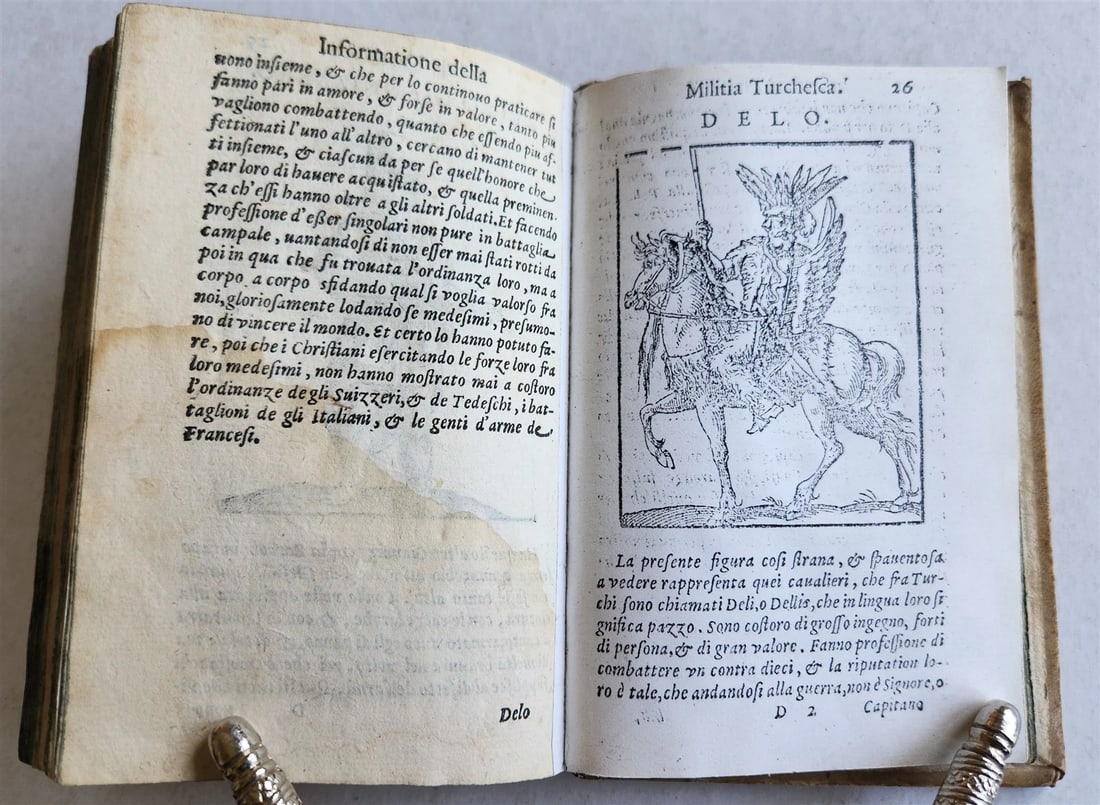 Informatione della
uono insieme, & che per lo continouo praticare si
fanno pari in amore, & forse in valore, tanto piu
vagliono combattendo, quanto che essendo piu af-
fettionati l'uno all'altro, cercano di mantener tut
ti insieme, & ciascun da per se quell'honore che
par loro di hauere acquistato, & quella preminen-
za ch'essi hanno oltre a gli altri soldati. Et facendo
professione d'eßer singolari non pure in battaglia
campale, uantandosi di non esser mai stati rotti da
poi in qua che fu trouata l'ordinanza loro, ma a
corpo a corpo sfidando qual si voglia valorso fra
noi, gloriosamente lodando se medesimi, presumo-
no di vincere il mondo. Et certo lo hanno potuto fa-
re, poi che i Christiani esercitando le forze loro fra
loro medesimi, non hanno mostrato mai a costoro
l'ordinanze degli Suizzeri, & de Tedeschi, i bat-
taglioni de gli Italiani, & le genti d'arme de
Francesi.
Delo
Militia Turchesca. 26
DELO.
La presente figura cosi strana, & spauentosa
a vedere rappresenta quei caualieri, che fra Tur-
chi sono chiamati Deli, o Dellis, che in lingua loro si
gnifica pazzo. Sono costoro di grosso ingegno, forti
di persona, & di gran valore. Fanno professione di
combattere vn contra dieci, & la riputation lo-
ro è tale, che andandosi alla guerra, non è Signore, o
D 2 Capitano